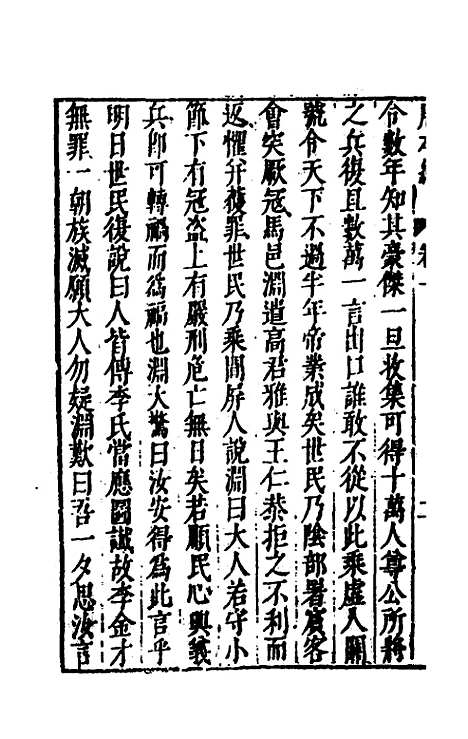 令數年知其豪傑一旦收集可得十萬人尊公所將
之兵復且數萬一言出口誰敢不從以此乘虛入關
號令天下不過半年帝業成矣世民乃陰部署賓客
會突厥寇馬邑淵遣高君雅與王仁恭拒之不利而
返懼并獲罪世民乃乘間屏人說淵曰大人若守小
節下有寇盜上有嚴刑危亡無日矣若順民心興義
兵即可轉禍而為福也淵大驚曰汝安得為此言乎
明日世民復說曰人皆傳李氏當應圖讖故李金才
無罪一朝族滅願大人勿疑淵歎曰吾一夕思汝言